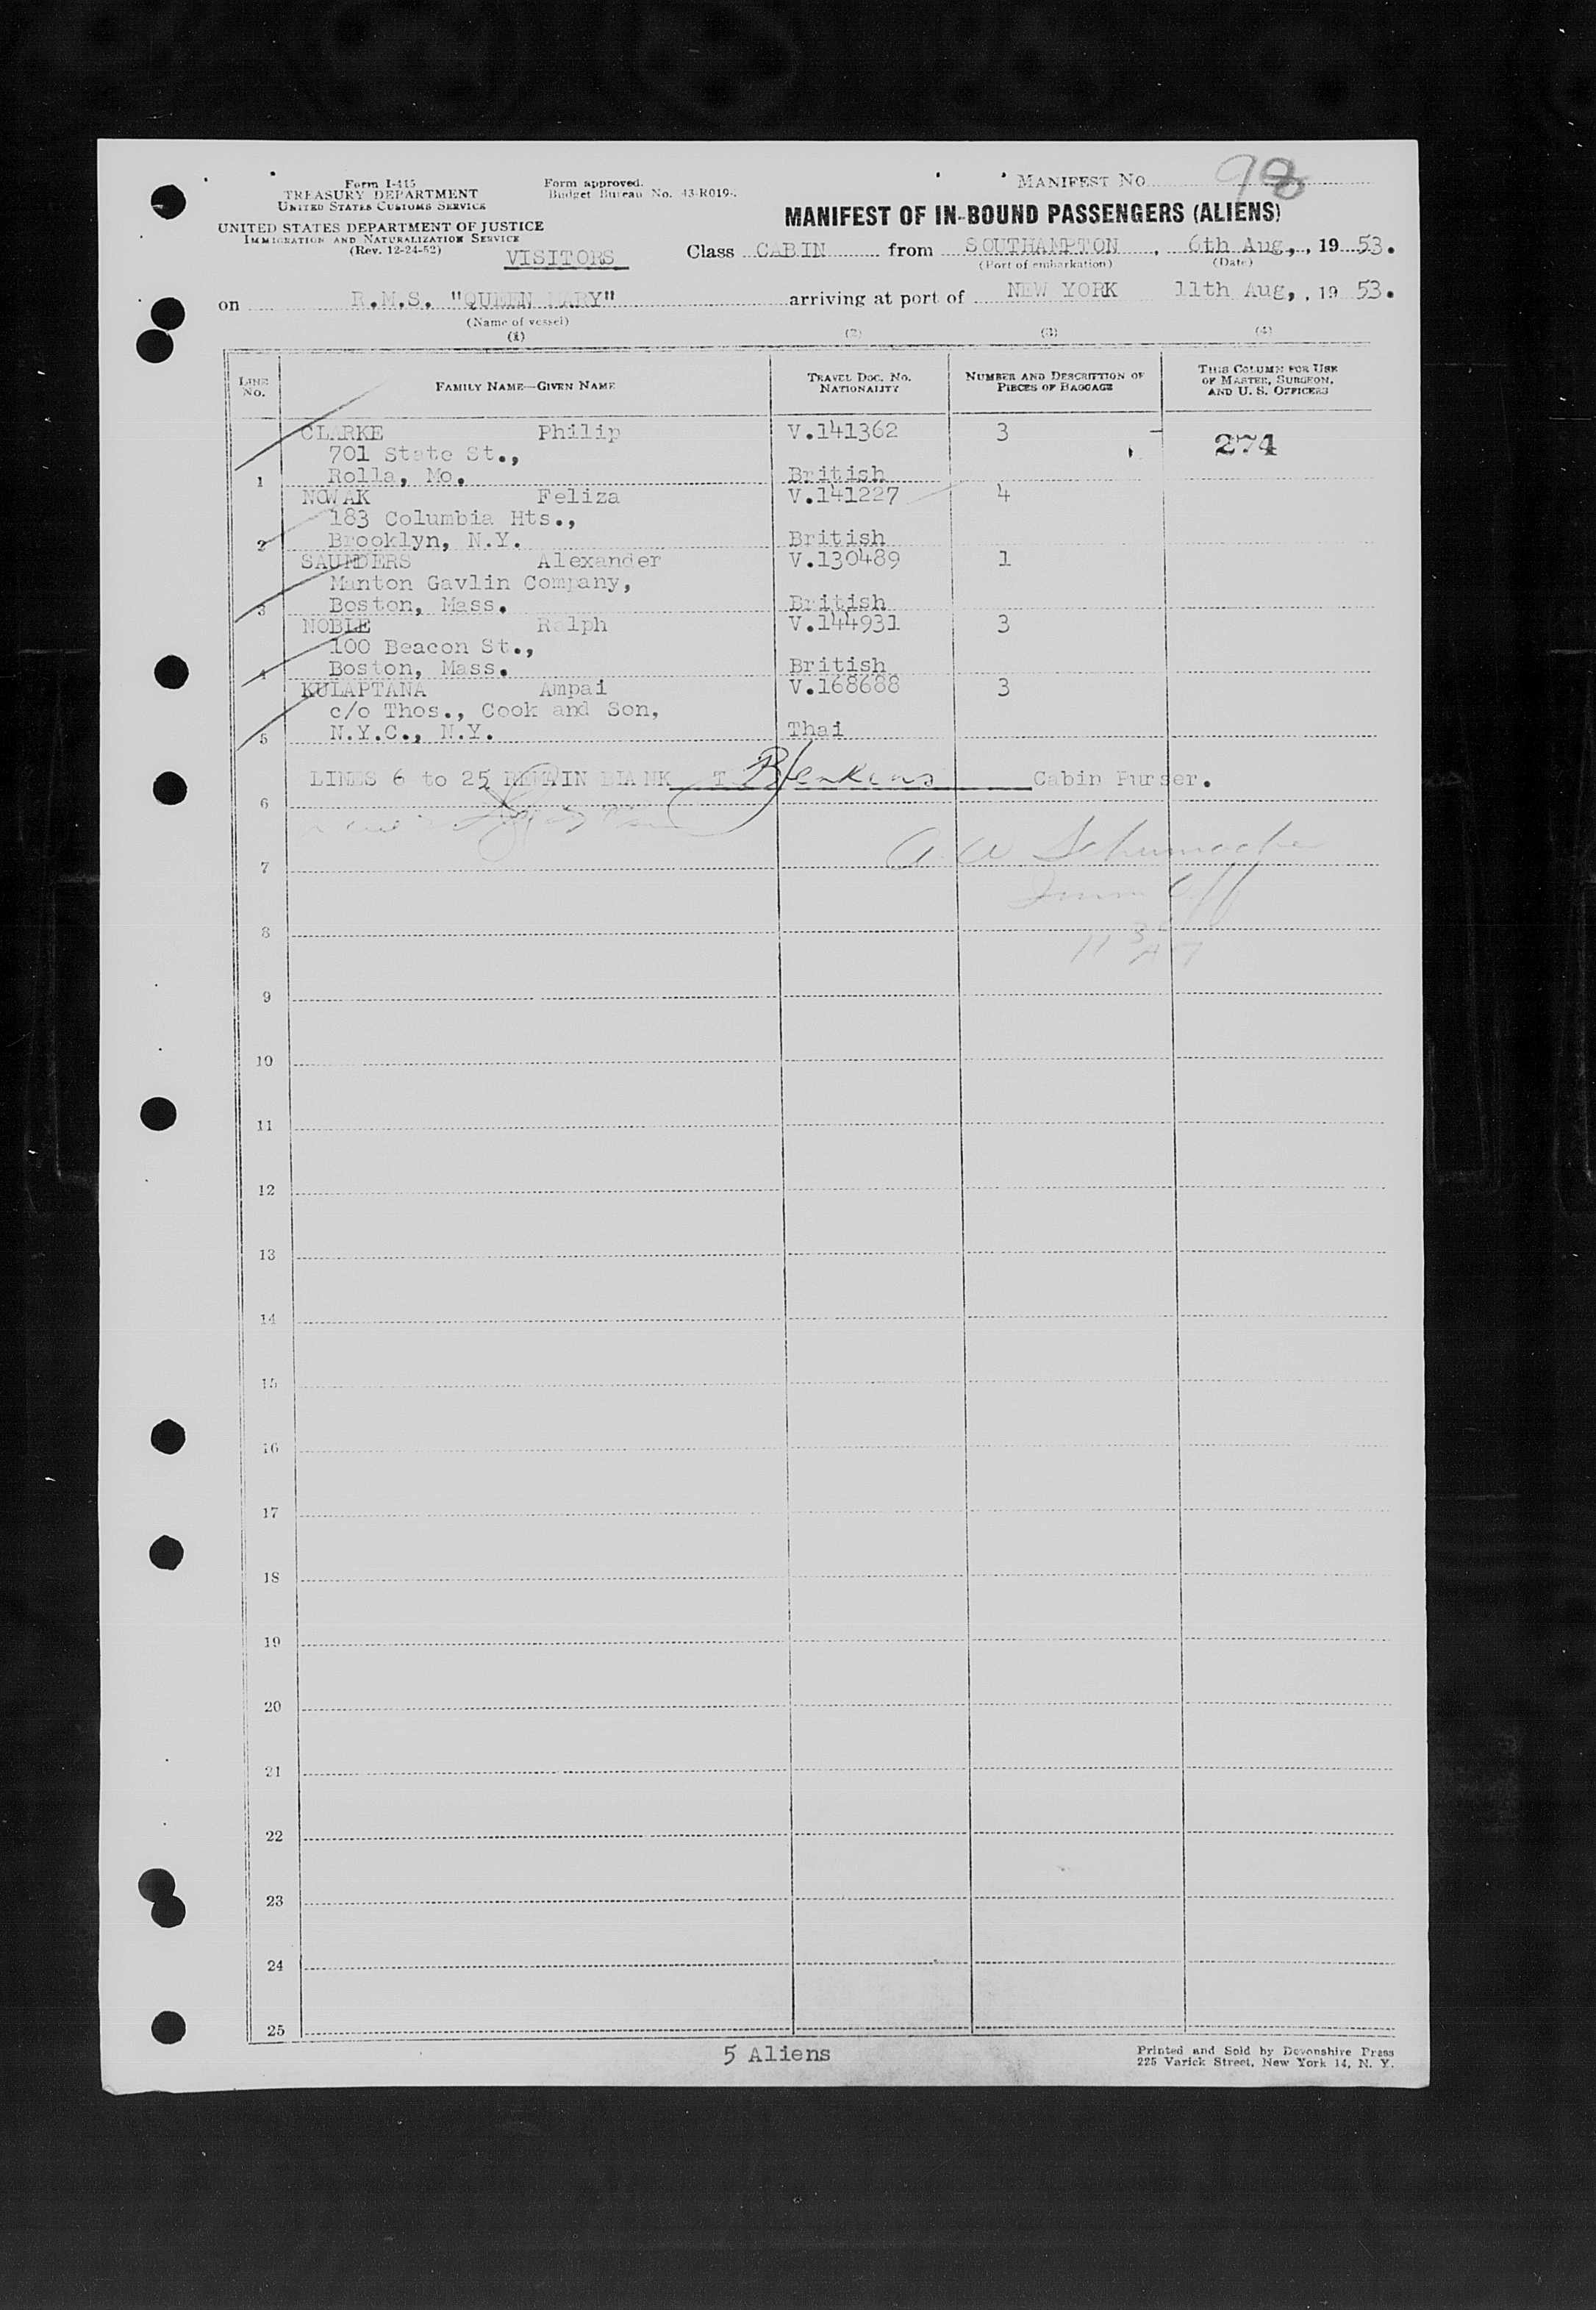 Form I-415
TREASURY DEPARTMENT
UNITED STATES CUSTOMS SERVICE
UNITED STATES DEPARTMENT OF JUSTICE
IMMIGRATION AND NATURALIZATION SERVICE
(Rev. 12-24-52)
Form approved.
Budget Bureau No. 43-R019-.
MANIFEST NO. 98
MANIFEST OF IN-BOUND PASSENGERS (ALIENS)
VISITORS
Class CABIN from SOUTHAMPTON, 6th Aug,, 19 53.
(Port of embarkation) (Date)
on R.M.S. "QUEEN MARY" arriving at port of NEW YORK 11th Aug,, 19 53.
(Name of vessel)
(1) (2) (3) (4)
LINE NO.
FAMILY NAME—GIVEN NAME
TRAVEL DOC. NO. NATIONALITY
NUMBER AND DESCRIPTION OF PIECES OF BAGGAGE
THIS COLUMN FOR USE OF MASTER, SURGEON, AND U. S. OFFICERS
CLARKE Philip V.141362 3 274
701 State St.,
1 Rolla, Mo. British
NOWAK Feliza V.141227 4
183 Columbia Hts.,
2 Brooklyn, N.Y. British
SAUNDERS Alexander V.130489 1
Manton Gavlin Company,
3 Boston, Mass. British
NOBLE Ralph V.144931 3
100 Beacon St.,
4 Boston, Mass. British
KULAPTANA Ampai V.168688 3
c/o Thos., Cook and Son,
5 N.Y.C., N.Y. Thai
LINES 6 to 25 REMAIN BLANK T BJenkins Cabin Purser.
6
A W Schumacher
7
Imm Off
8
9
10
11
12
13
14
15
16
17
18
19
20
21
22
23
24
25
5 Aliens
Printed and Sold by Devonshire Press
225 Varick Street, New York 14, N. Y.